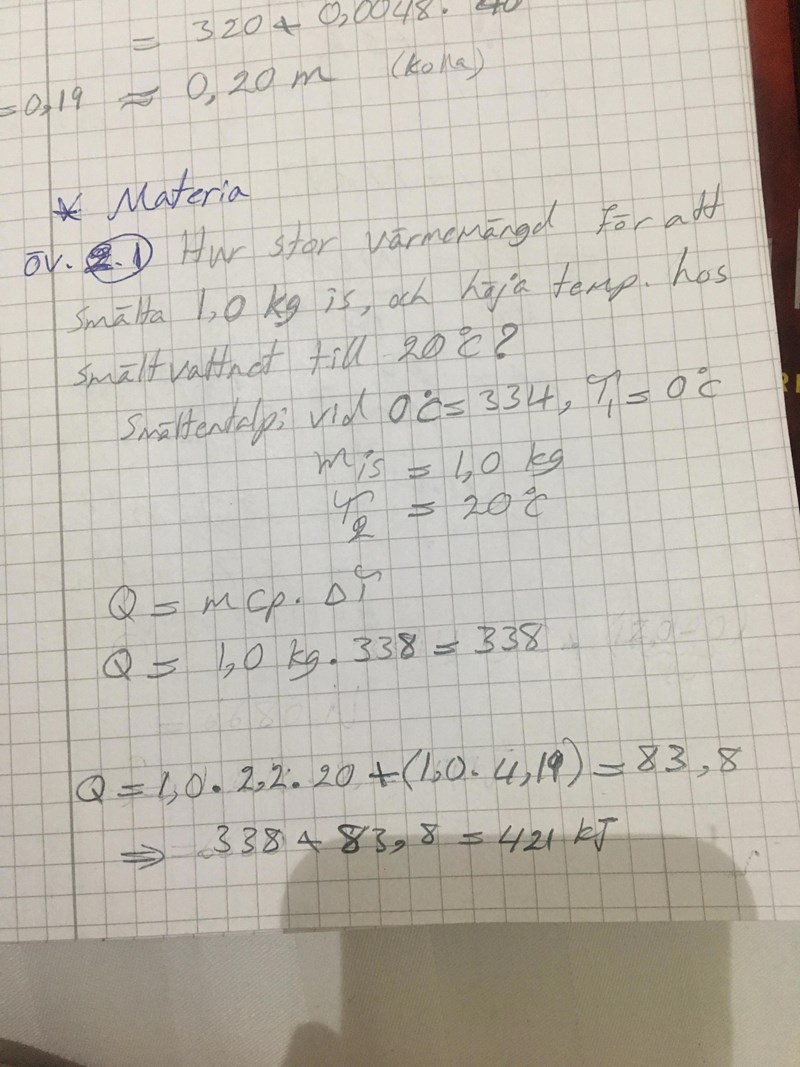 = 320 + 0,0048. 40
=0,19 ≈ 0,20 m (kolla)
* Materia
öv. 2.1 Hur stor värmemängd för att
smälta 1,0 kg is, och höja temp. hos
smältvattnet till 20°C?
Smältentalpi vid 0°C= 334, T₁= 0°C
mis = 1,0 kg
T₂ = 20°C
Q = m cp. ΔT
Q = 1,0 kg. 338 = 338
Q = 1,0. 2,2. 20 + (1,0. 4,19) = 83,8
⇒ 338 + 83,8 = 421 kJ